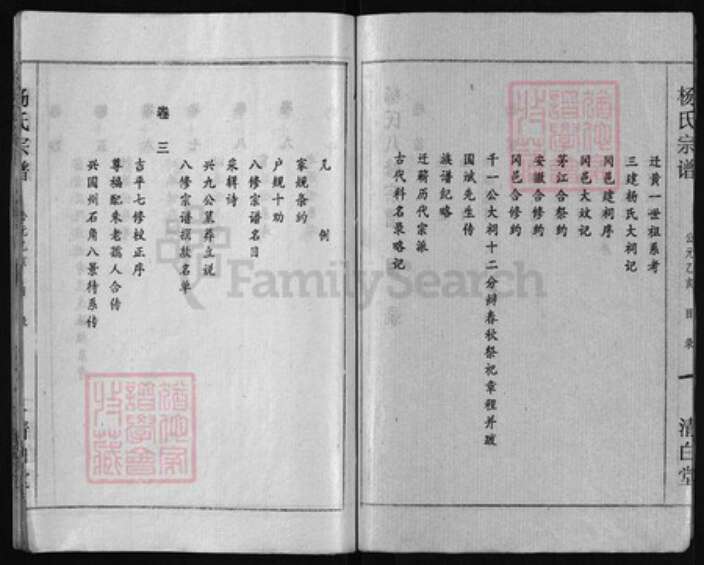 杨氏宗谱
公元乙亥
目录
一
清白堂
迁黄一世祖系考
三建杨氏大祠记
冈邑建祠序
冈邑大效记
茅江合祭约
安徽合修约
冈邑合修约
千一公大祠十二分辩春秋祭祀章程并跋
国斌先生传
族谱纪略
迁蕲历代宗派
古代科名录略记
凡例
家规条约
户规十助
八修宗谱名目
采辑诗
兴九公墓葬立说
八修宗谱撰款名单
卷三
吉平七修校正序
尊福配朱老孺人合传
兴国州石角八景特系传
FamilySearch